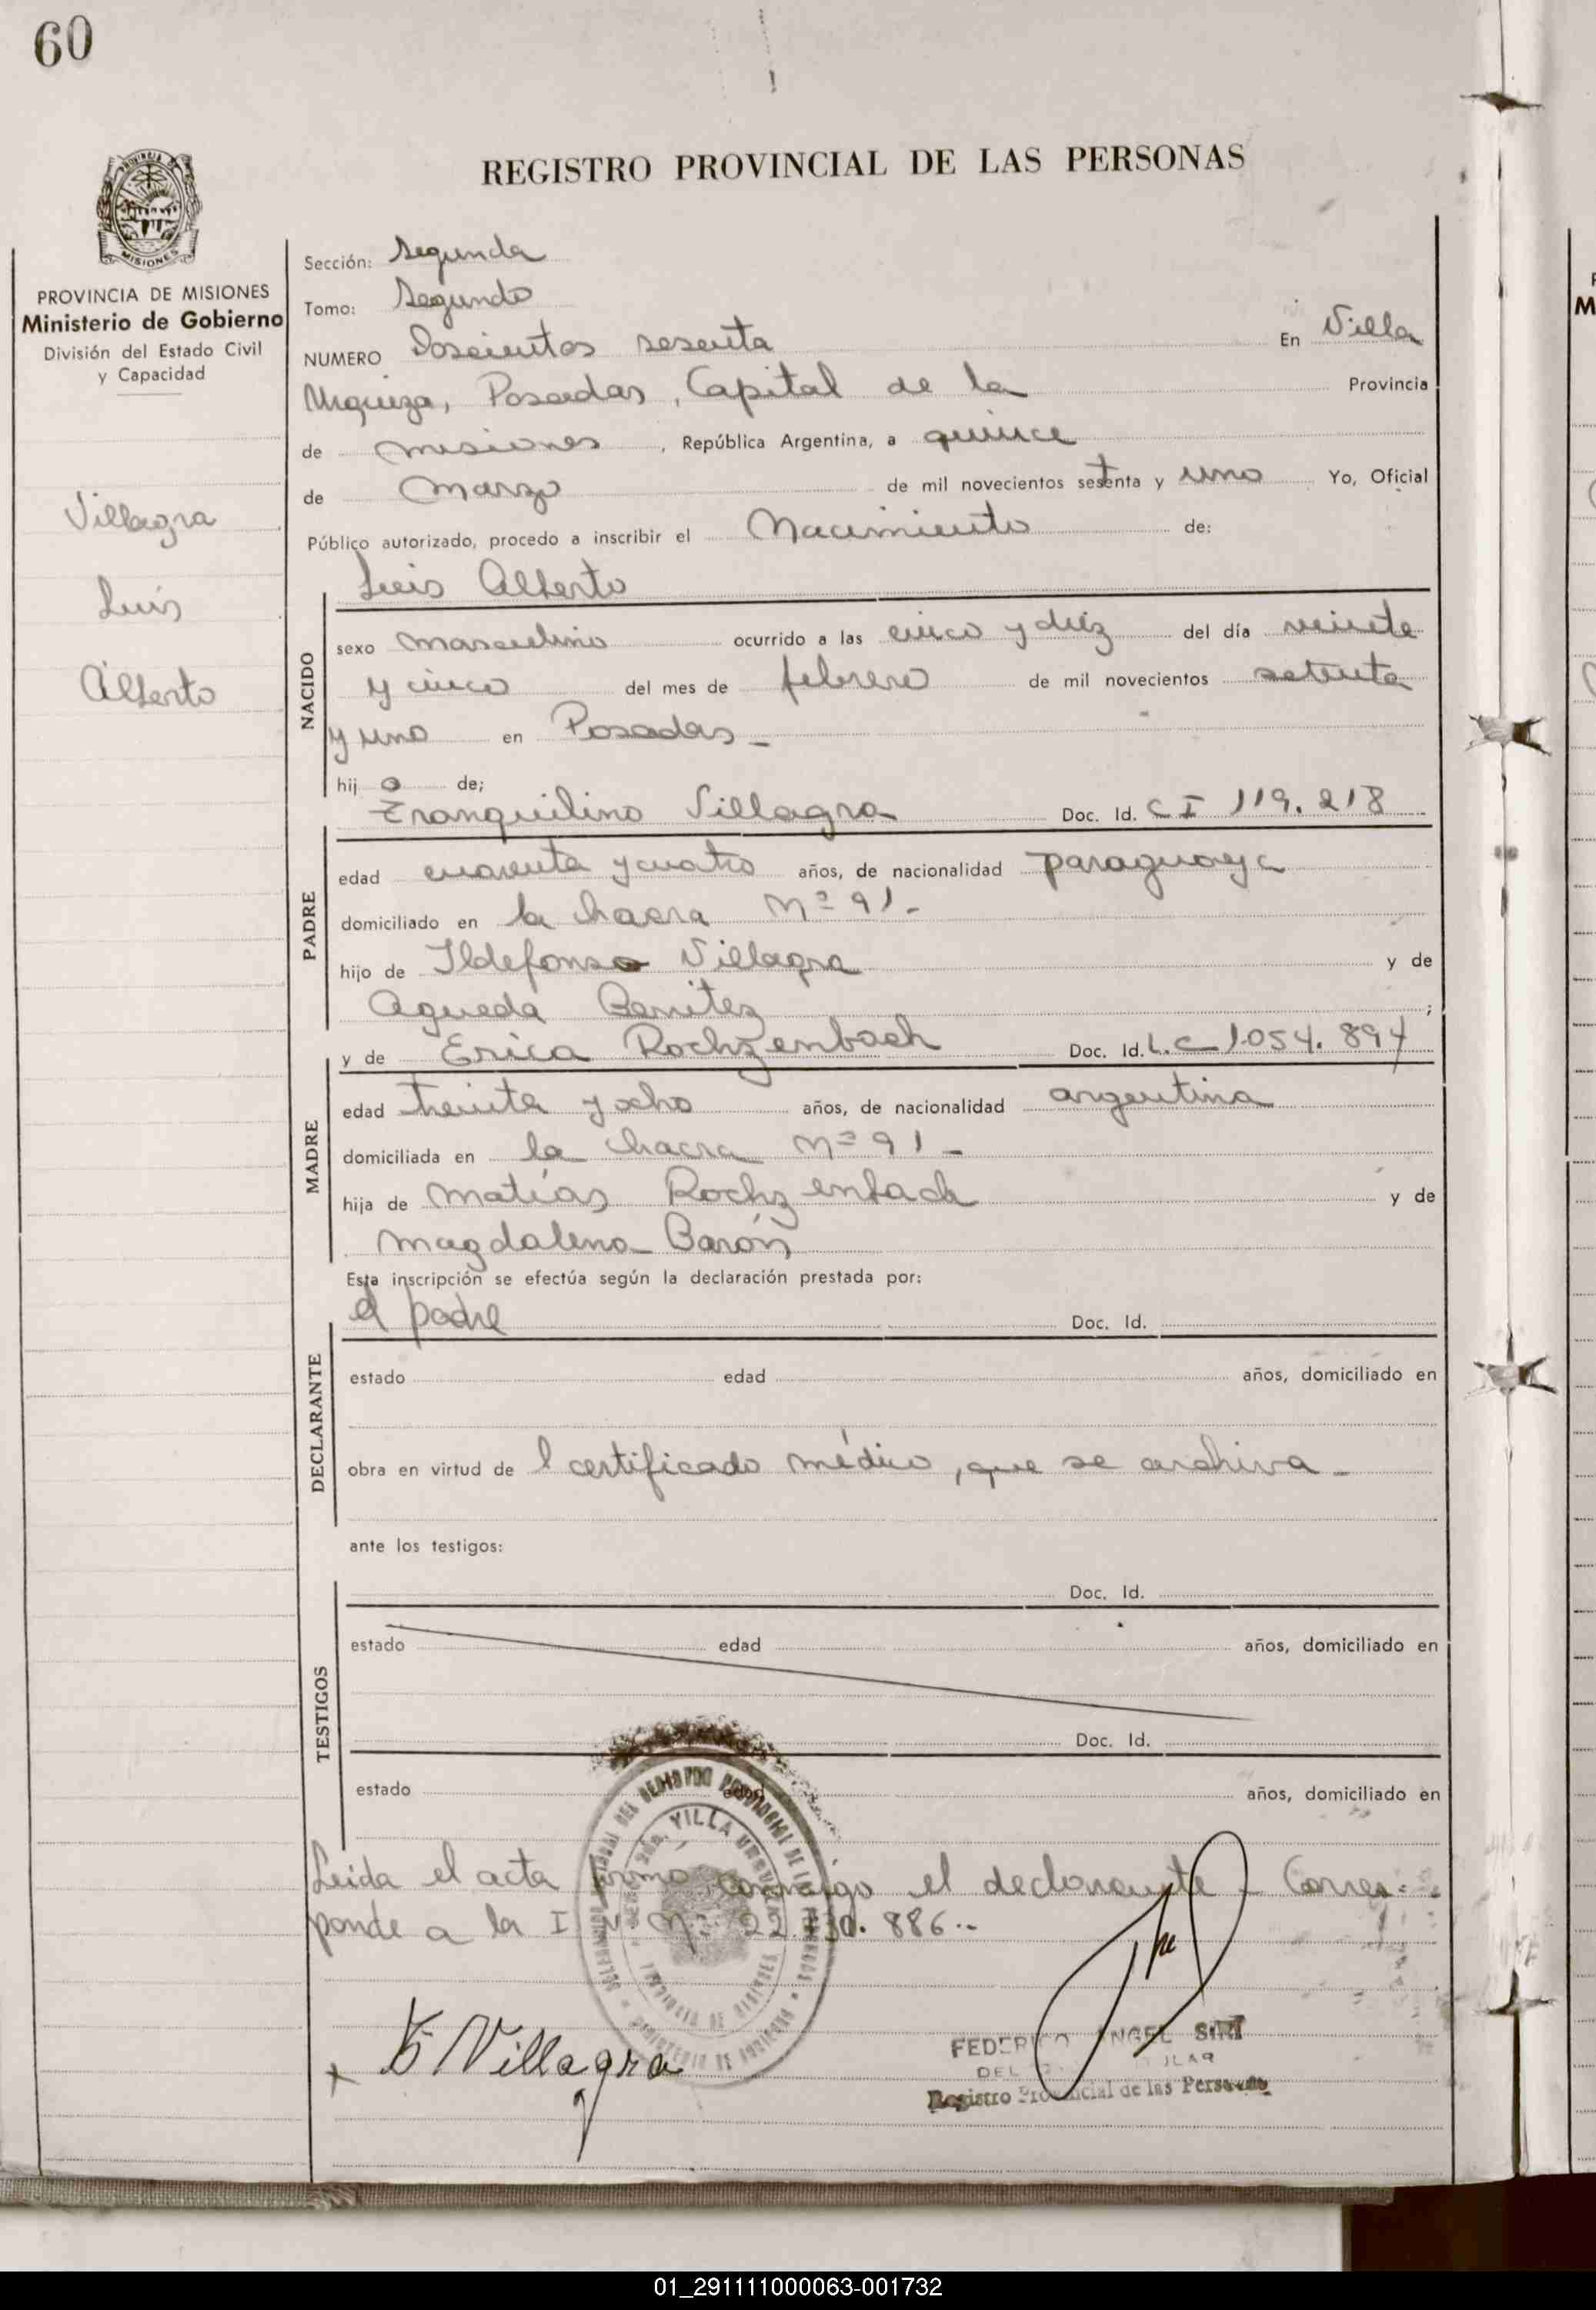 60
REGISTRO PROVINCIAL DE LAS PERSONAS
PROVINCIA DE MISIONES
Ministerio de Gobierno
División del Estado Civil
y Capacidad
Villagra
Luis
Alberto
Sección: Segunda
Tomo: Segundo
NUMERO Doscientos sesenta En Villa
Urquiza, Posadas, Capital de la Provincia
de misiones, República Argentina, a quince
de Marzo de mil novecientos setenta y uno Yo, Oficial
Público autorizado, procedo a inscribir el Nacimiento de:
Luis Alberto
NACIDO
sexo masculino ocurrido a las cinco y diez del día veinte
y cinco del mes de febrero de mil novecientos setenta
y uno en Posadas -
hij o de;
Tranquilino Villagra Doc. Id. C I 119.218
PADRE
edad cuarenta y cuatro años, de nacionalidad paraguaya
domiciliado en la chacra Nº 91 -
hijo de Ildefonso Villagra y de
Agueda Benitez ;
y de Erica Rochzenbach Doc. Id. L.C 1.054.894
MADRE
edad treinta y ocho años, de nacionalidad argentina
domiciliada en la chacra Nº 91 -
hija de Matías Rochzenbach y de
Magdalena Barón
Esta inscripción se efectúa según la declaración prestada por:
el padre Doc. Id.
DECLARANTE
estado edad años, domiciliado en
obra en virtud de l certificado médico, que se archiva -
ante los testigos:
Doc. Id.
TESTIGOS
estado edad años, domiciliado en
Doc. Id.
estado edad años, domiciliado en
Leida el acta firmó conmigo el declarante - Corres-
ponde a la I 886.-
VILLA URQUIZA
PROVINCIA DE MISIONES
Villagra
FEDERICO ANGEL
DEL
Registro Provincial de las Personas
01_291111000063-001732